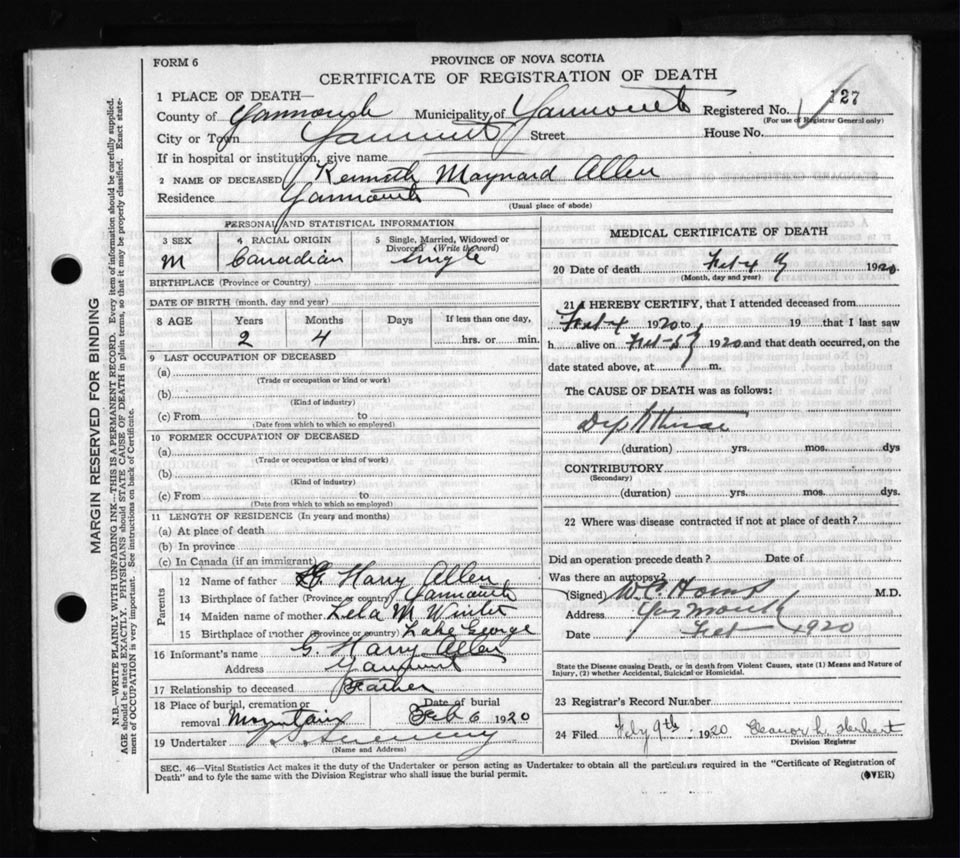 FORM 6
PROVINCE OF NOVA SCOTIA
CERTIFICATE OF REGISTRATION OF DEATH
MARGIN RESERVED FOR BINDING
N.B.—WRITE PLAINLY WITH UNFADING INK—THIS IS A PERMANENT RECORD. Every item of information should be carefully supplied.
AGE should be stated EXACTLY. PHYSICIANS should STATE CAUSE OF DEATH in plain terms, so that it may be properly classified. Exact state-
ment of OCCUPATION is very important. See instructions on back of Certificate.
1 PLACE OF DEATH—
County of Yarmouth Municipality of Yarmouth Registered No. 127
(For use of Registrar General only)
City or Town Yarmouth Street House No.
If in hospital or institution, give name
2 NAME OF DECEASED Kenneth Maynard Allen
Residence Yarmouth
(Usual place of abode)
PERSONAL AND STATISTICAL INFORMATION
3 SEX 4 RACIAL ORIGIN 5 Single, Married, Widowed or Divorced (Write the word)
M Canadian Single
BIRTHPLACE (Province or Country)
DATE OF BIRTH (month, day and year)
8 AGE Years Months Days If less than one day,
2 4 hrs. or min.
9 LAST OCCUPATION OF DECEASED
(a)
(Trade or occupation or kind or work)
(b)
(Kind of industry)
(c) From to
(Date from which to which so employed)
10 FORMER OCCUPATION OF DECEASED
(a)
(Trade or occupation or kind of work)
(b)
(Kind of industry)
(c) From to
(Date from which to which so employed)
11 LENGTH OF RESIDENCE (In years and months)
(a) At place of death
(b) In province
(c) In Canada (if an immigrant)
Parents
12 Name of father G Harry Allen
13 Birthplace of father (Province or country) Yarmouth
14 Maiden name of mother Lela M
15 Birthplace of mother (Province or country) Lake George
16 Informant's name G. Harry Allen
Address Yarmouth
17 Relationship to deceased Father
18 Place of burial, cremation or removal Mountain Date of burial Feb 6 1920
19 Undertaker
(Name and Address)
MEDICAL CERTIFICATE OF DEATH
20 Date of death Feb 4 1920
(Month, day and year)
21 I HEREBY CERTIFY, that I attended deceased from
Feb 4 1920 to 19 that I last saw
h alive on Feb 1920 and that death occurred, on the
date stated above, at m.
The CAUSE OF DEATH was as follows:
(duration) yrs. mos. dys
CONTRIBUTORY
(Secondary)
(duration) yrs. mos. dys.
22 Where was disease contracted if not at place of death?
Did an operation precede death? Date of
Was there an autopsy?
(Signed) M.D.
Address Yarmouth
Date Feb 1920
State the Disease causing Death, or in death from Violent Causes, state (1) Means and Nature of
Injury, (2) whether Accidental, Suicidal or Homicidal.
23 Registrar's Record Number
24 Filed Feby 9th 1920 Eleanor L. Herbert
Division Registrar
SEC. 46—Vital Statistics Act makes it the duty of the Undertaker or person acting as Undertaker to obtain all the particulars required in the "Certificate of Registration of
Death" and to fyle the same with the Division Registrar who shall issue the burial permit.
(OVER)